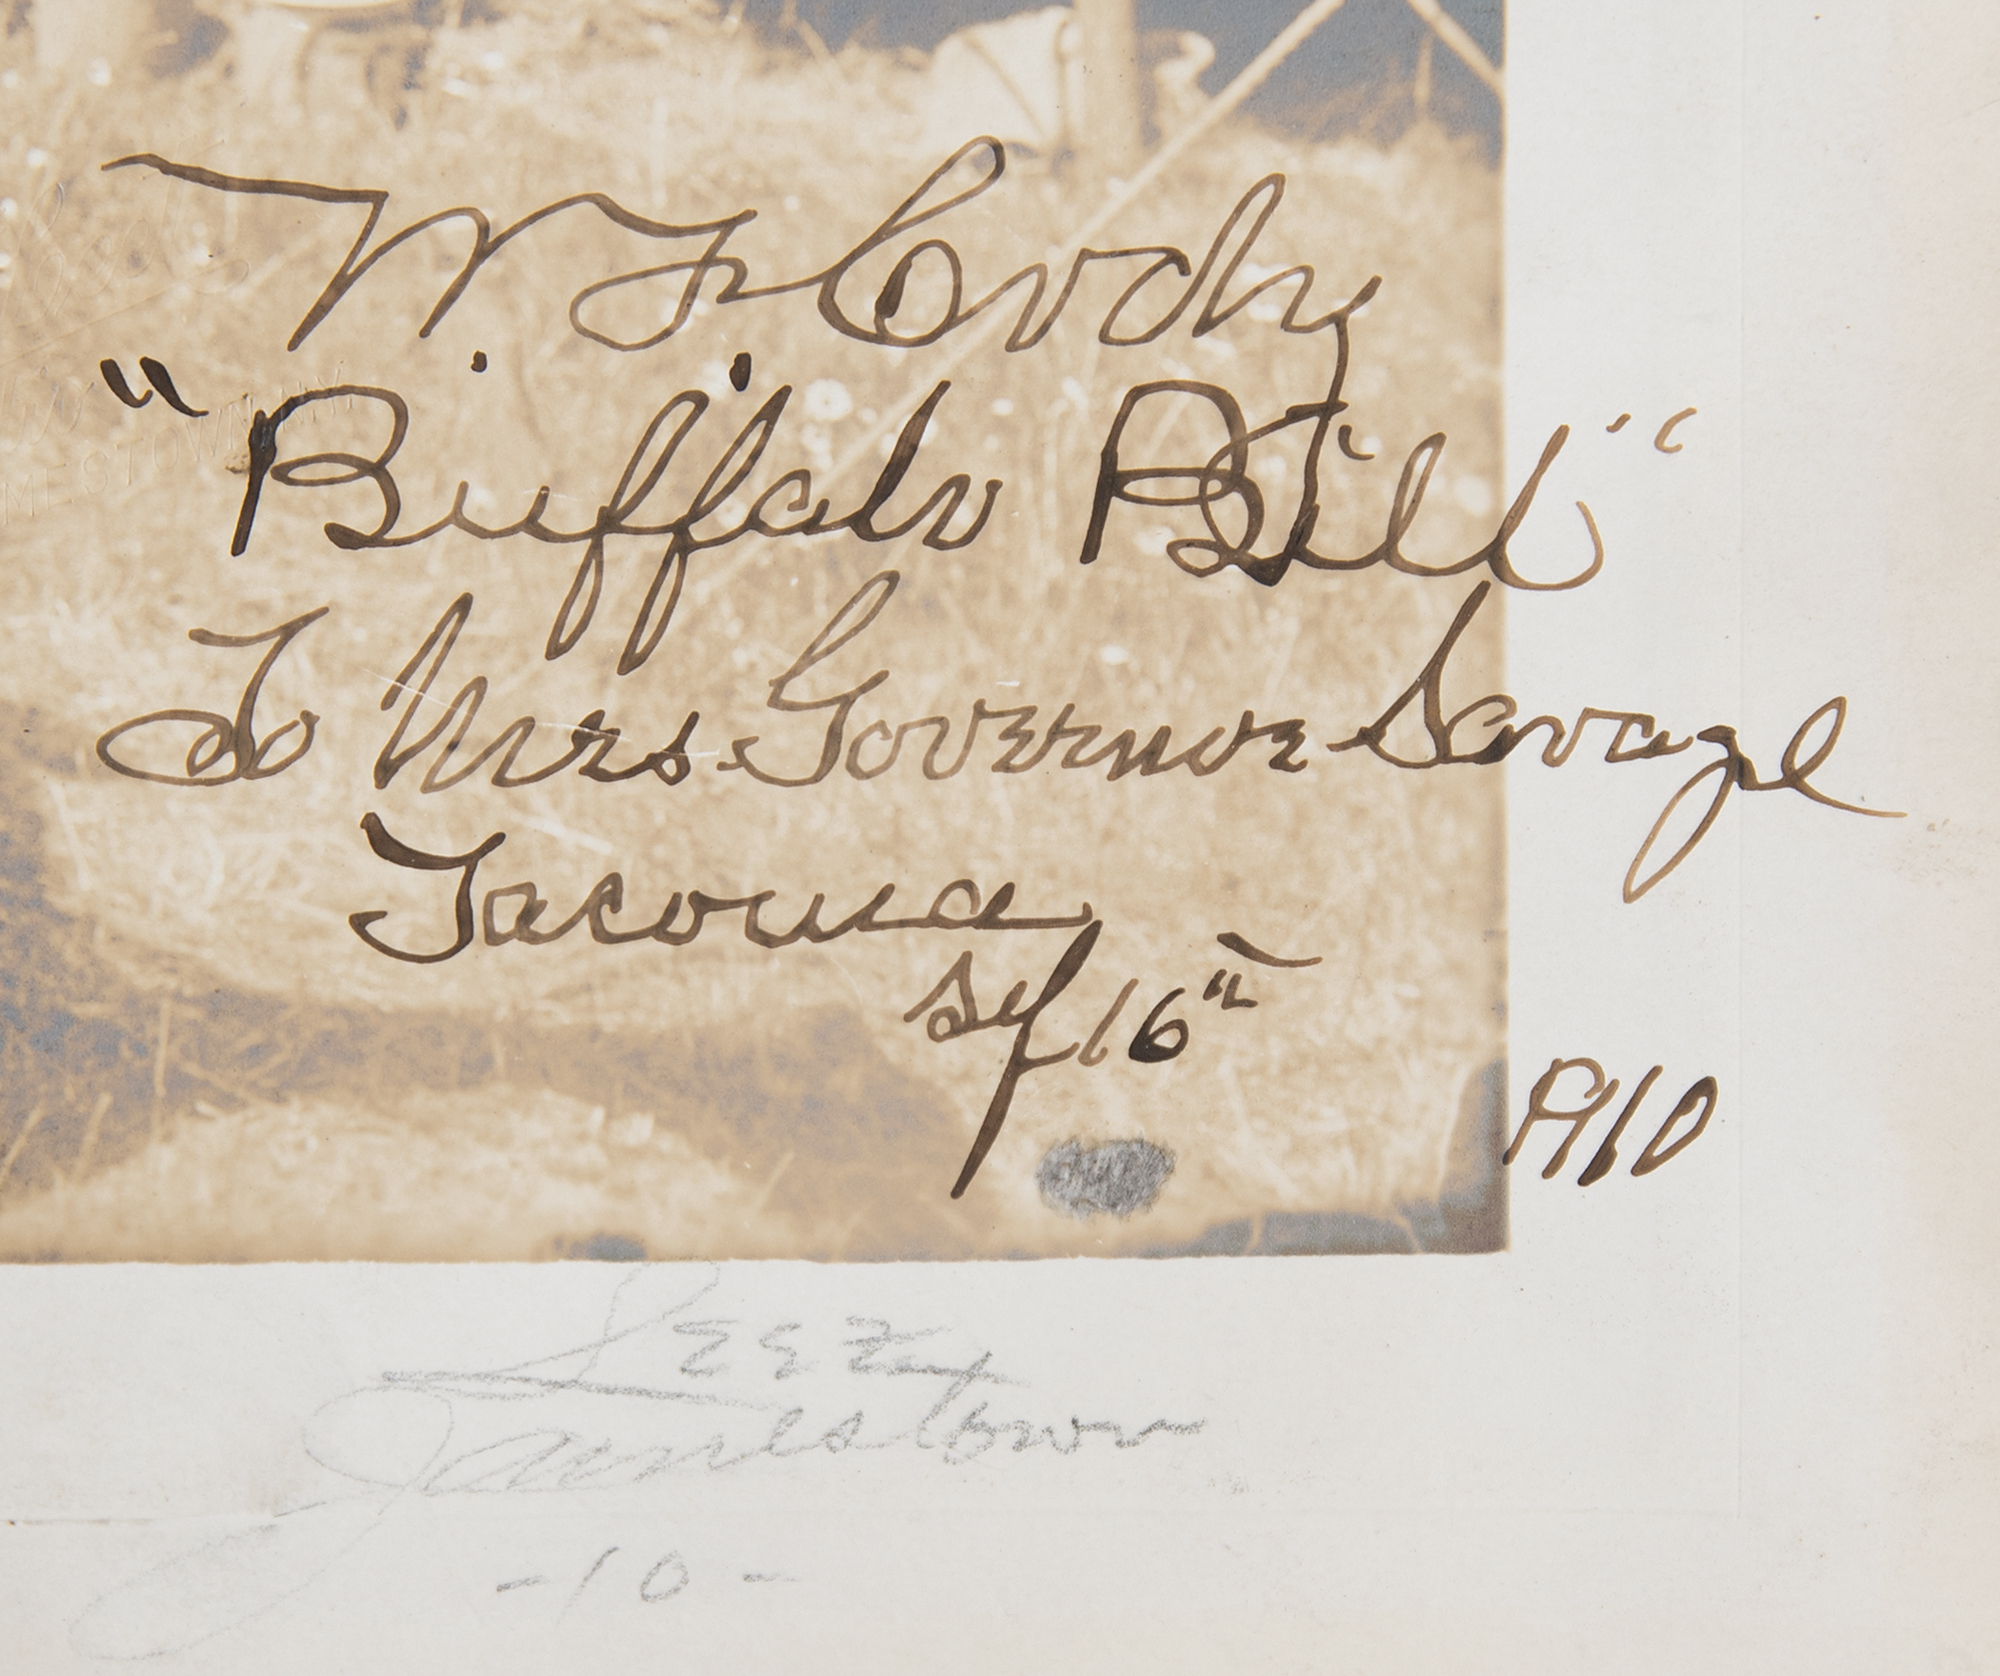 W. F. Cody
"Buffalo Bill"
To Mrs Governor Savage
Tacoma
Sep 16th
1910
Jamestown
-10-